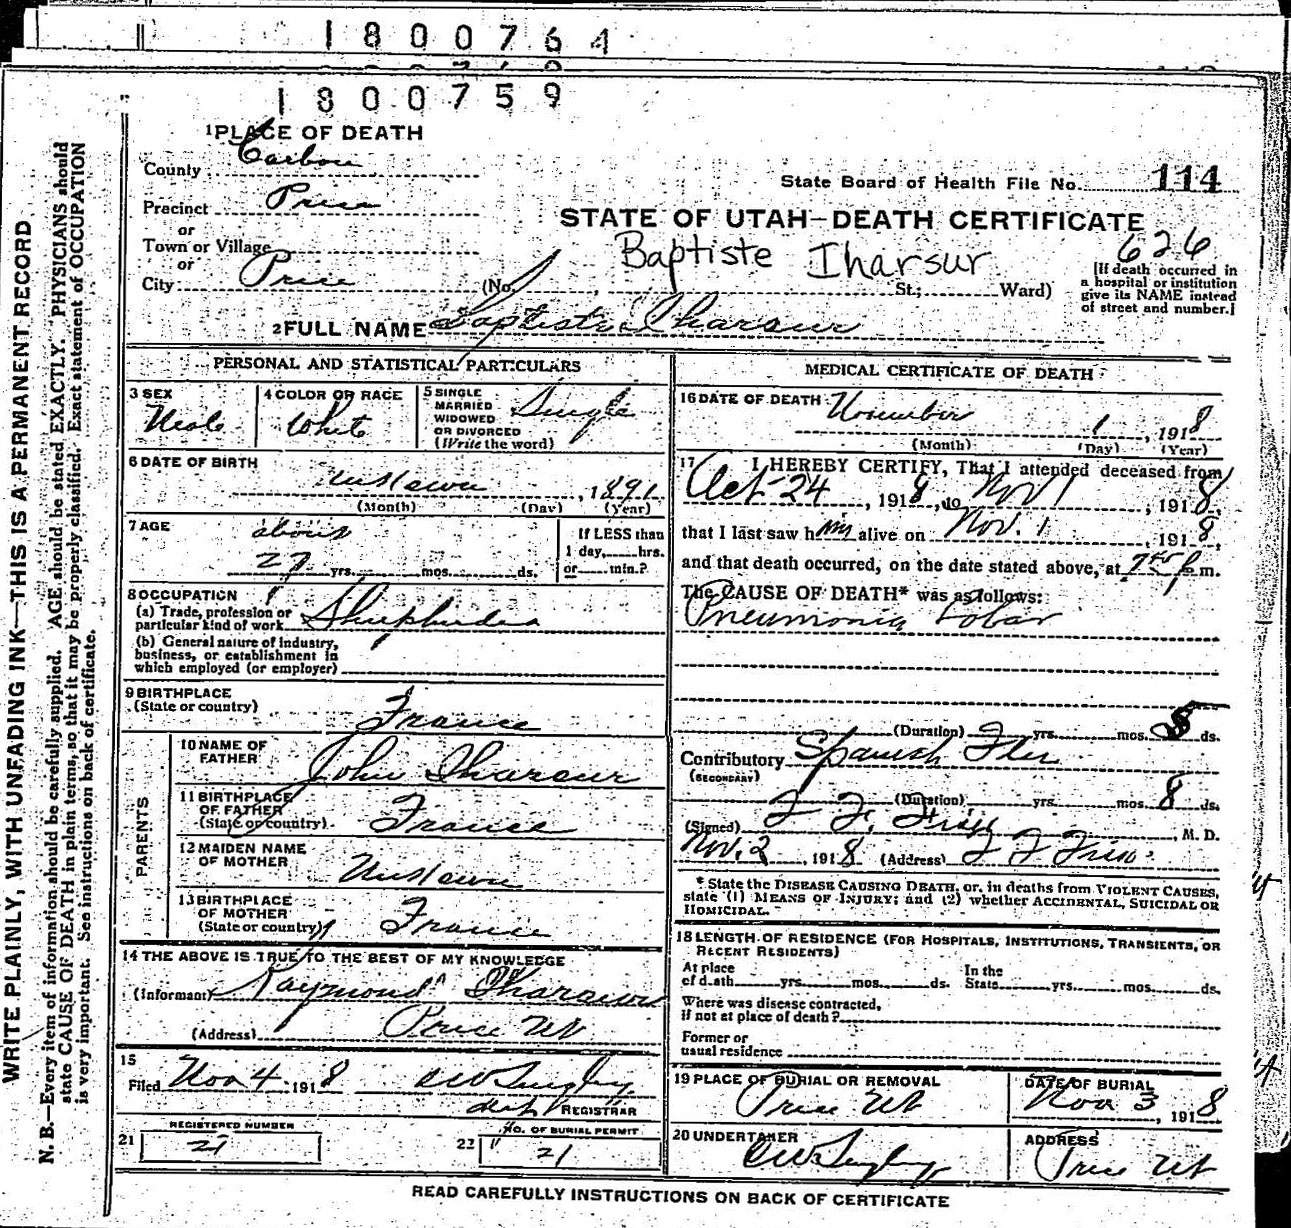 1800764
1800759
1 PLACE OF DEATH
County Carbon
Precinct Price
or
Town or Village
or
City Price (No. St.; Ward)
State Board of Health File No. 114
STATE OF UTAH—DEATH CERTIFICATE
Baptiste Iharsur
626
[If death occurred in
a hospital or institution
give its NAME instead
of street and number.]
2 FULL NAME Baptiste Iharsur
PERSONAL AND STATISTICAL PARTICULARS
3 SEX
Male
4 COLOR OR RACE
White
5 SINGLE
MARRIED
WIDOWED
OR DIVORCED
(Write the word)
Single
6 DATE OF BIRTH
Unknown, 1891
(Month) (Day) (Year)
7 AGE
about
27 yrs. mos. ds.
If LESS than
1 day, hrs.
or min.?
8 OCCUPATION
(a) Trade, profession or
particular kind of work Shepherder
(b) General nature of industry,
business, or establishment in
which employed (or employer)
9 BIRTHPLACE
(State or country)
France
PARENTS
10 NAME OF
FATHER John Iharsur
11 BIRTHPLACE
OF FATHER
(State or country) France
12 MAIDEN NAME
OF MOTHER Unknown
13 BIRTHPLACE
OF MOTHER
(State or country) France
14 THE ABOVE IS TRUE TO THE BEST OF MY KNOWLEDGE
(Informant) Raymond Iharsur
(Address) Price Ut
15
Filed Nov 4 1918
dept REGISTRAR
REGISTERED NUMBER
21 21
No. OF BURIAL PERMIT
22 21
MEDICAL CERTIFICATE OF DEATH
16 DATE OF DEATH November 1, 1918
(Month) (Day) (Year)
17 I HEREBY CERTIFY, That I attended deceased from
Oct 24, 1918, to Nov 1, 1918,
that I last saw him alive on Nov. 1, 1918,
and that death occurred, on the date stated above, at 7 45 p m.
The CAUSE OF DEATH* was as follows:
Pneumonia Lobar
(Duration) yrs. mos. 8 ds.
Contributory Spanish Flu
(SECONDARY)
(Duration) yrs. mos. 8 ds.
(Signed) F F Fisk, M. D.
Nov. 2, 1918 (Address)
* State the DISEASE CAUSING DEATH, or, in deaths from VIOLENT CAUSES,
state (1) MEANS OF INJURY; and (2) whether ACCIDENTAL, SUICIDAL OR
HOMICIDAL.
18 LENGTH OF RESIDENCE (FOR HOSPITALS, INSTITUTIONS, TRANSIENTS, OR
RECENT RESIDENTS)
At place
of death yrs. mos. ds.
In the
State yrs. mos. ds.
Where was disease contracted,
if not at place of death?
Former or
usual residence
19 PLACE OF BURIAL OR REMOVAL
Price Ut
DATE OF BURIAL
Nov 3, 1918
20 UNDERTAKER
ADDRESS
Price Ut
READ CAREFULLY INSTRUCTIONS ON BACK OF CERTIFICATE
WRITE PLAINLY, WITH UNFADING INK—THIS IS A PERMANENT RECORD
N. B.—Every item of information should be carefully supplied. AGE should be stated EXACTLY. PHYSICIANS should
state CAUSE OF DEATH in plain terms, so that it may be properly classified. Exact statement of OCCUPATION
is very important. See instructions on back of certificate.